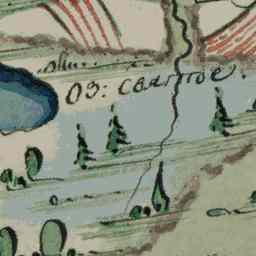 ОЗ: СВЯТОЕ.